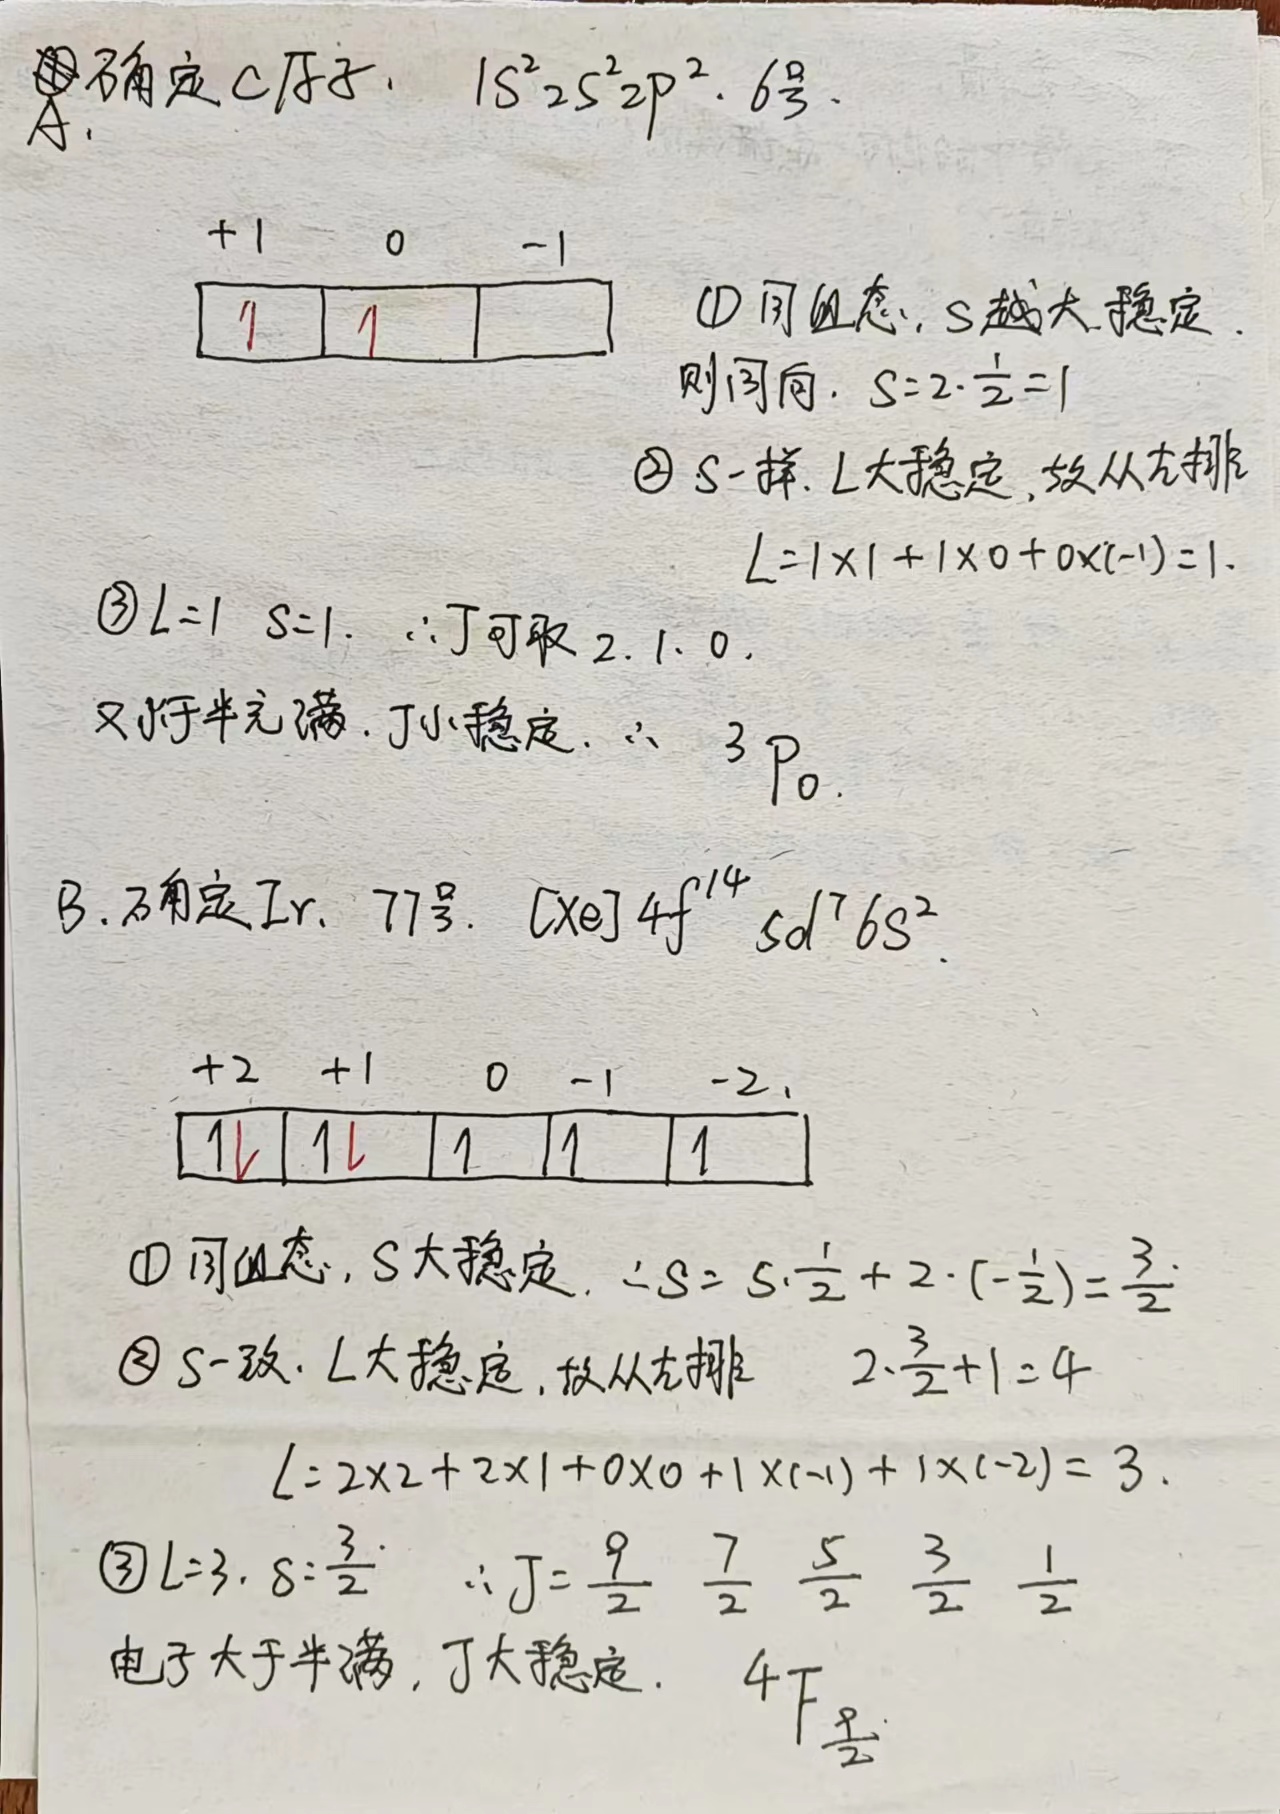 A. 确定C原子. 1S²2S²2P². 6号.
+1 0 -1
↿ ↿
① 同组态, S越大稳定.
则同向. S=2·1/2=1
② S一样. L大稳定, 故从左排
L=1×1+1×0+0×(-1)=1.
③ L=1 S=1. ∴J可取 2. 1. 0.
又少于半充满. J小稳定. ∴ ³P₀.
B. 确定Ir. 77号. [Xe]4f¹⁴5d⁷6S².
+2 +1 0 -1 -2.
↿⇂ ↿⇂ ↿ ↿ ↿
① 同组态, S大稳定. ∴S=5·1/2+2·(-1/2)=3/2
② S一致. L大稳定, 故从左排 2·3/2+1=4
L=2×2+2×1+0×0+1×(-1)+1×(-2)=3.
③ L=3. S=3/2 ∴J=9/2 7/2 5/2 3/2 1/2
电子大于半满, J大稳定. ⁴F9/2